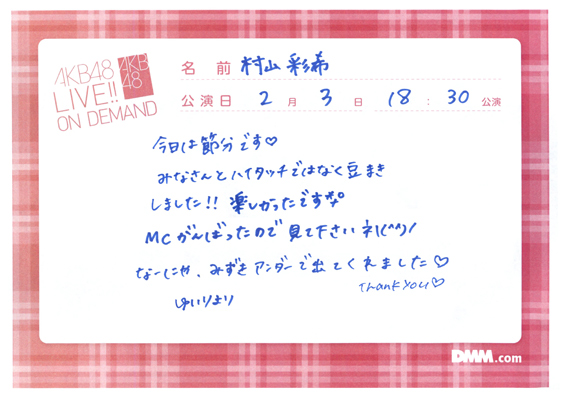 AKB48
LIVE!!
ON DEMAND
AKB
48
名 前 村山 彩希
公演日 2 月 3 日 18 : 30 公演
今日は節分です♡
みなさんとハイタッチではなく豆まき
しました!! 楽しかったです
MCがんばったので見て下さいネ!(^^)/
なーにゃ、みずきアンダーで出てくれました♡
Thank you♡
ゆいりより
DMM.com